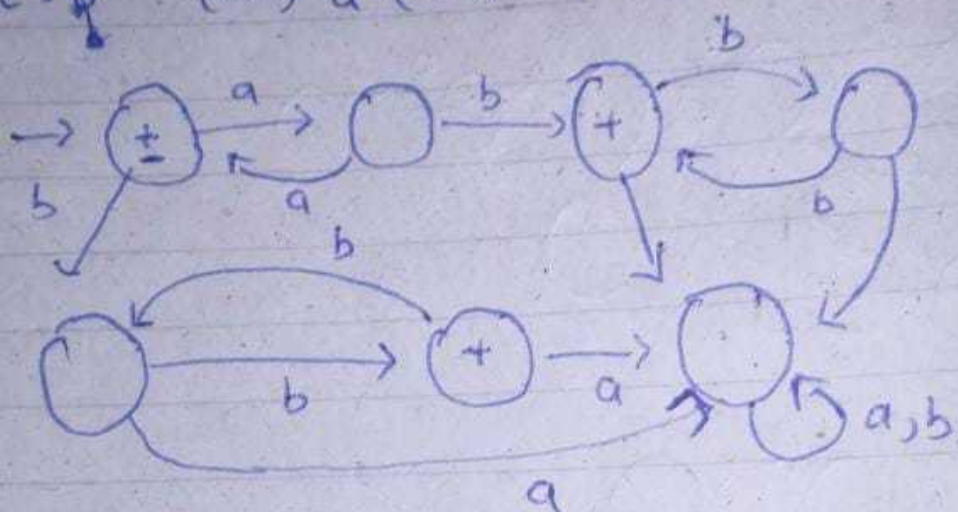 b
a
b
±
+
a
b
b
b
b
+
a
a, b
a